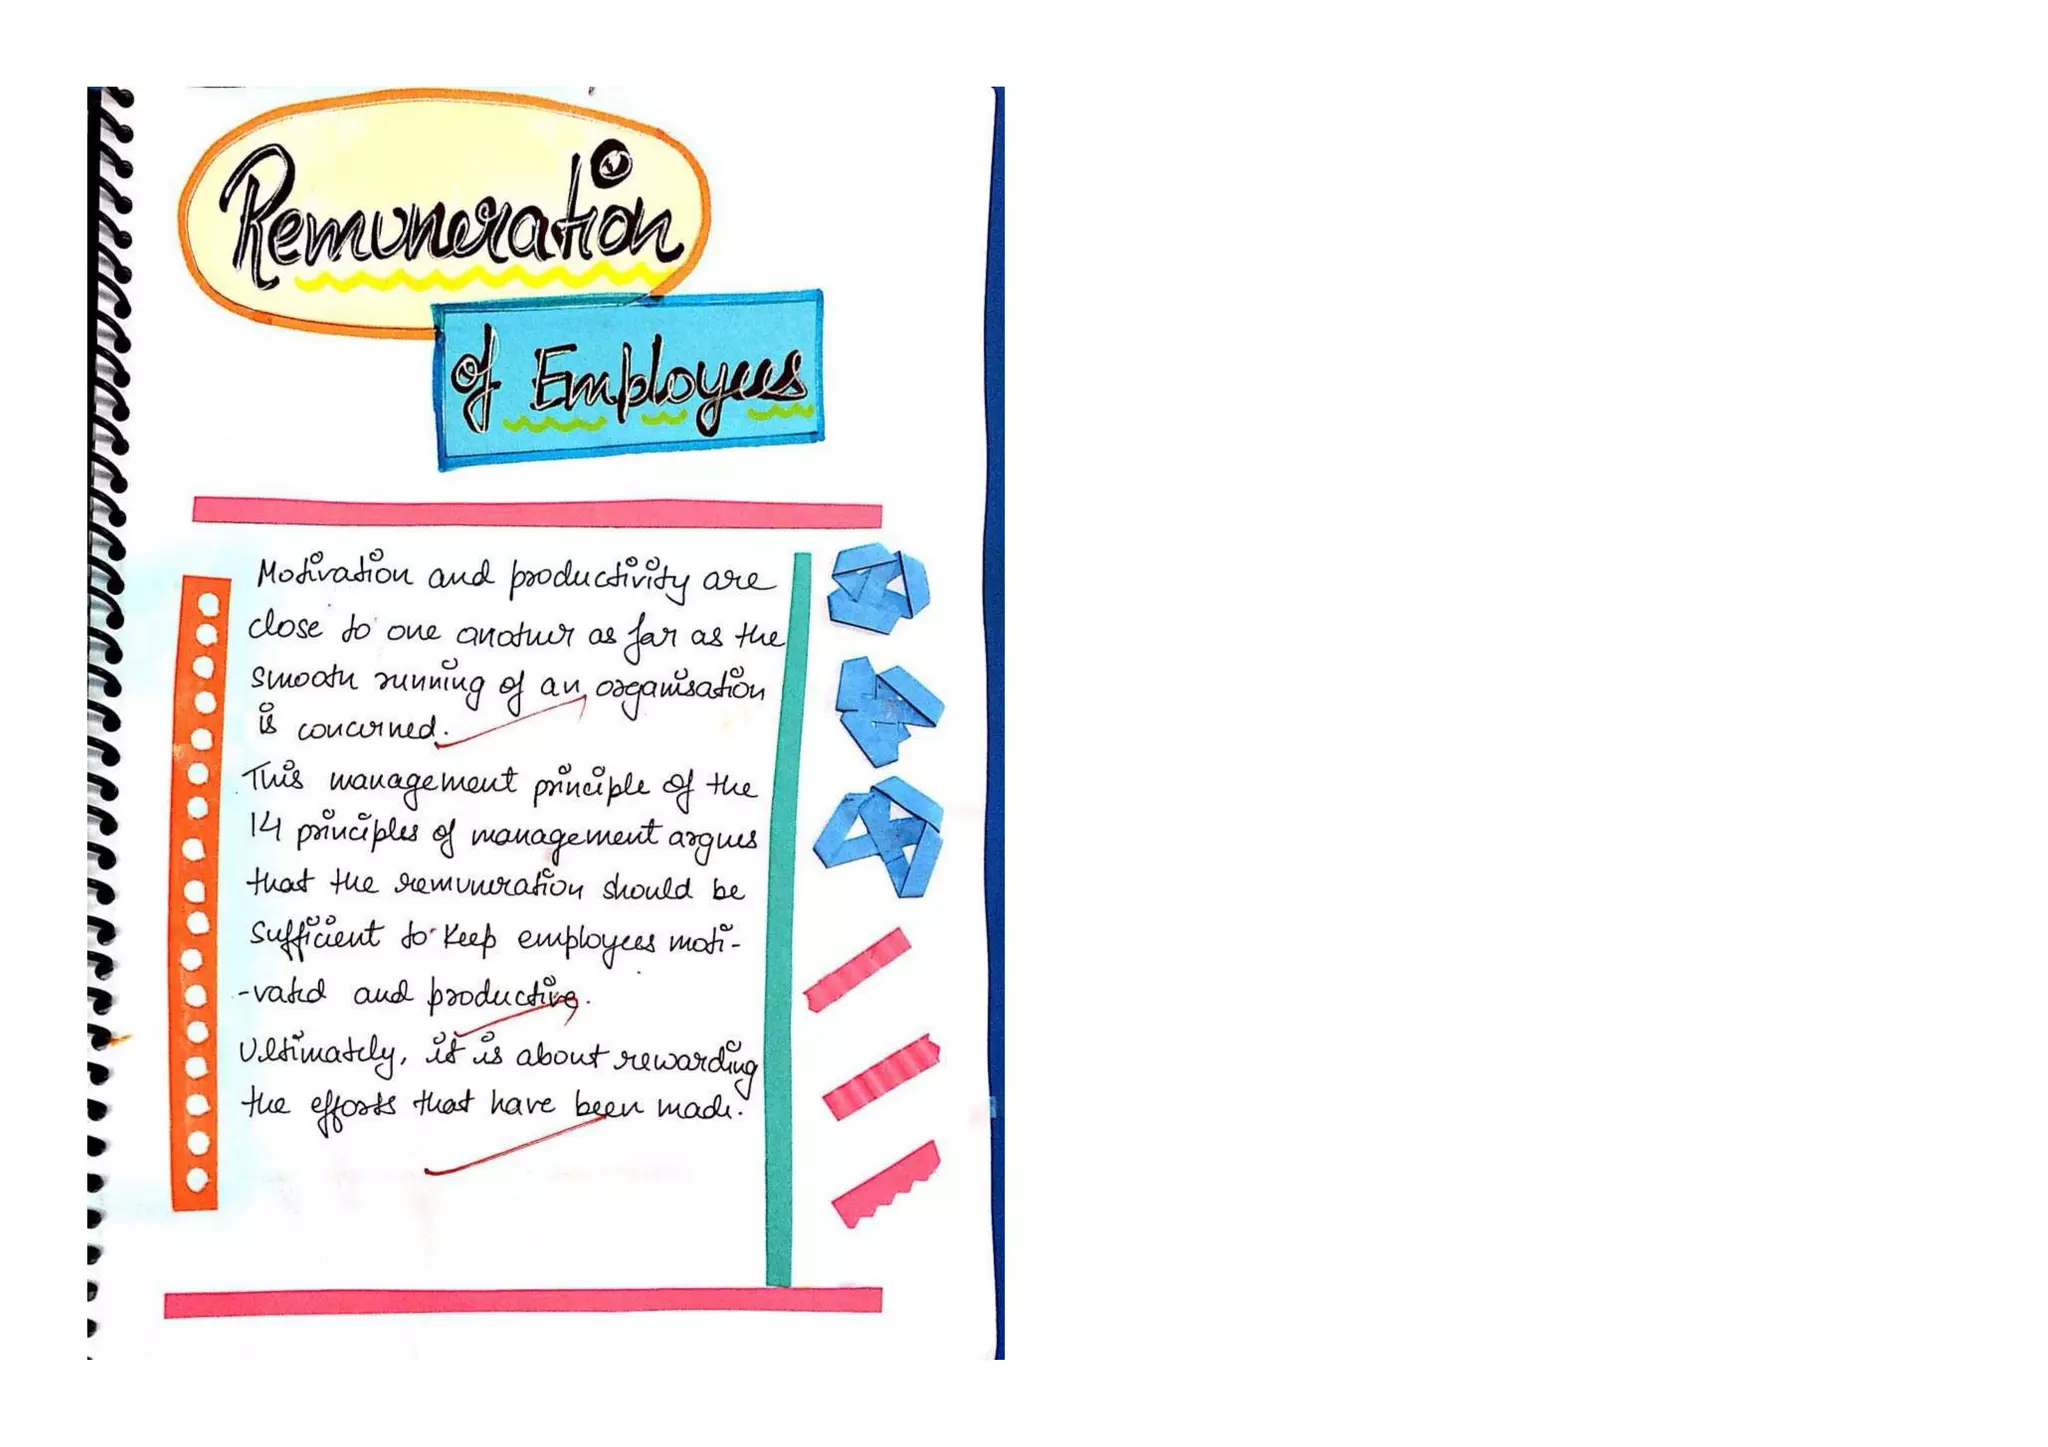 Remuneration
of Employees
Motivation and productivity are
close to one another as far as the
smooth running of an organisation
is concerned.
This management principle of the
14 principles of management argues
that the remuneration should be
sufficient to keep employees moti-
-vated and productive.
Ultimately, it is about rewarding
the efforts that have been made.